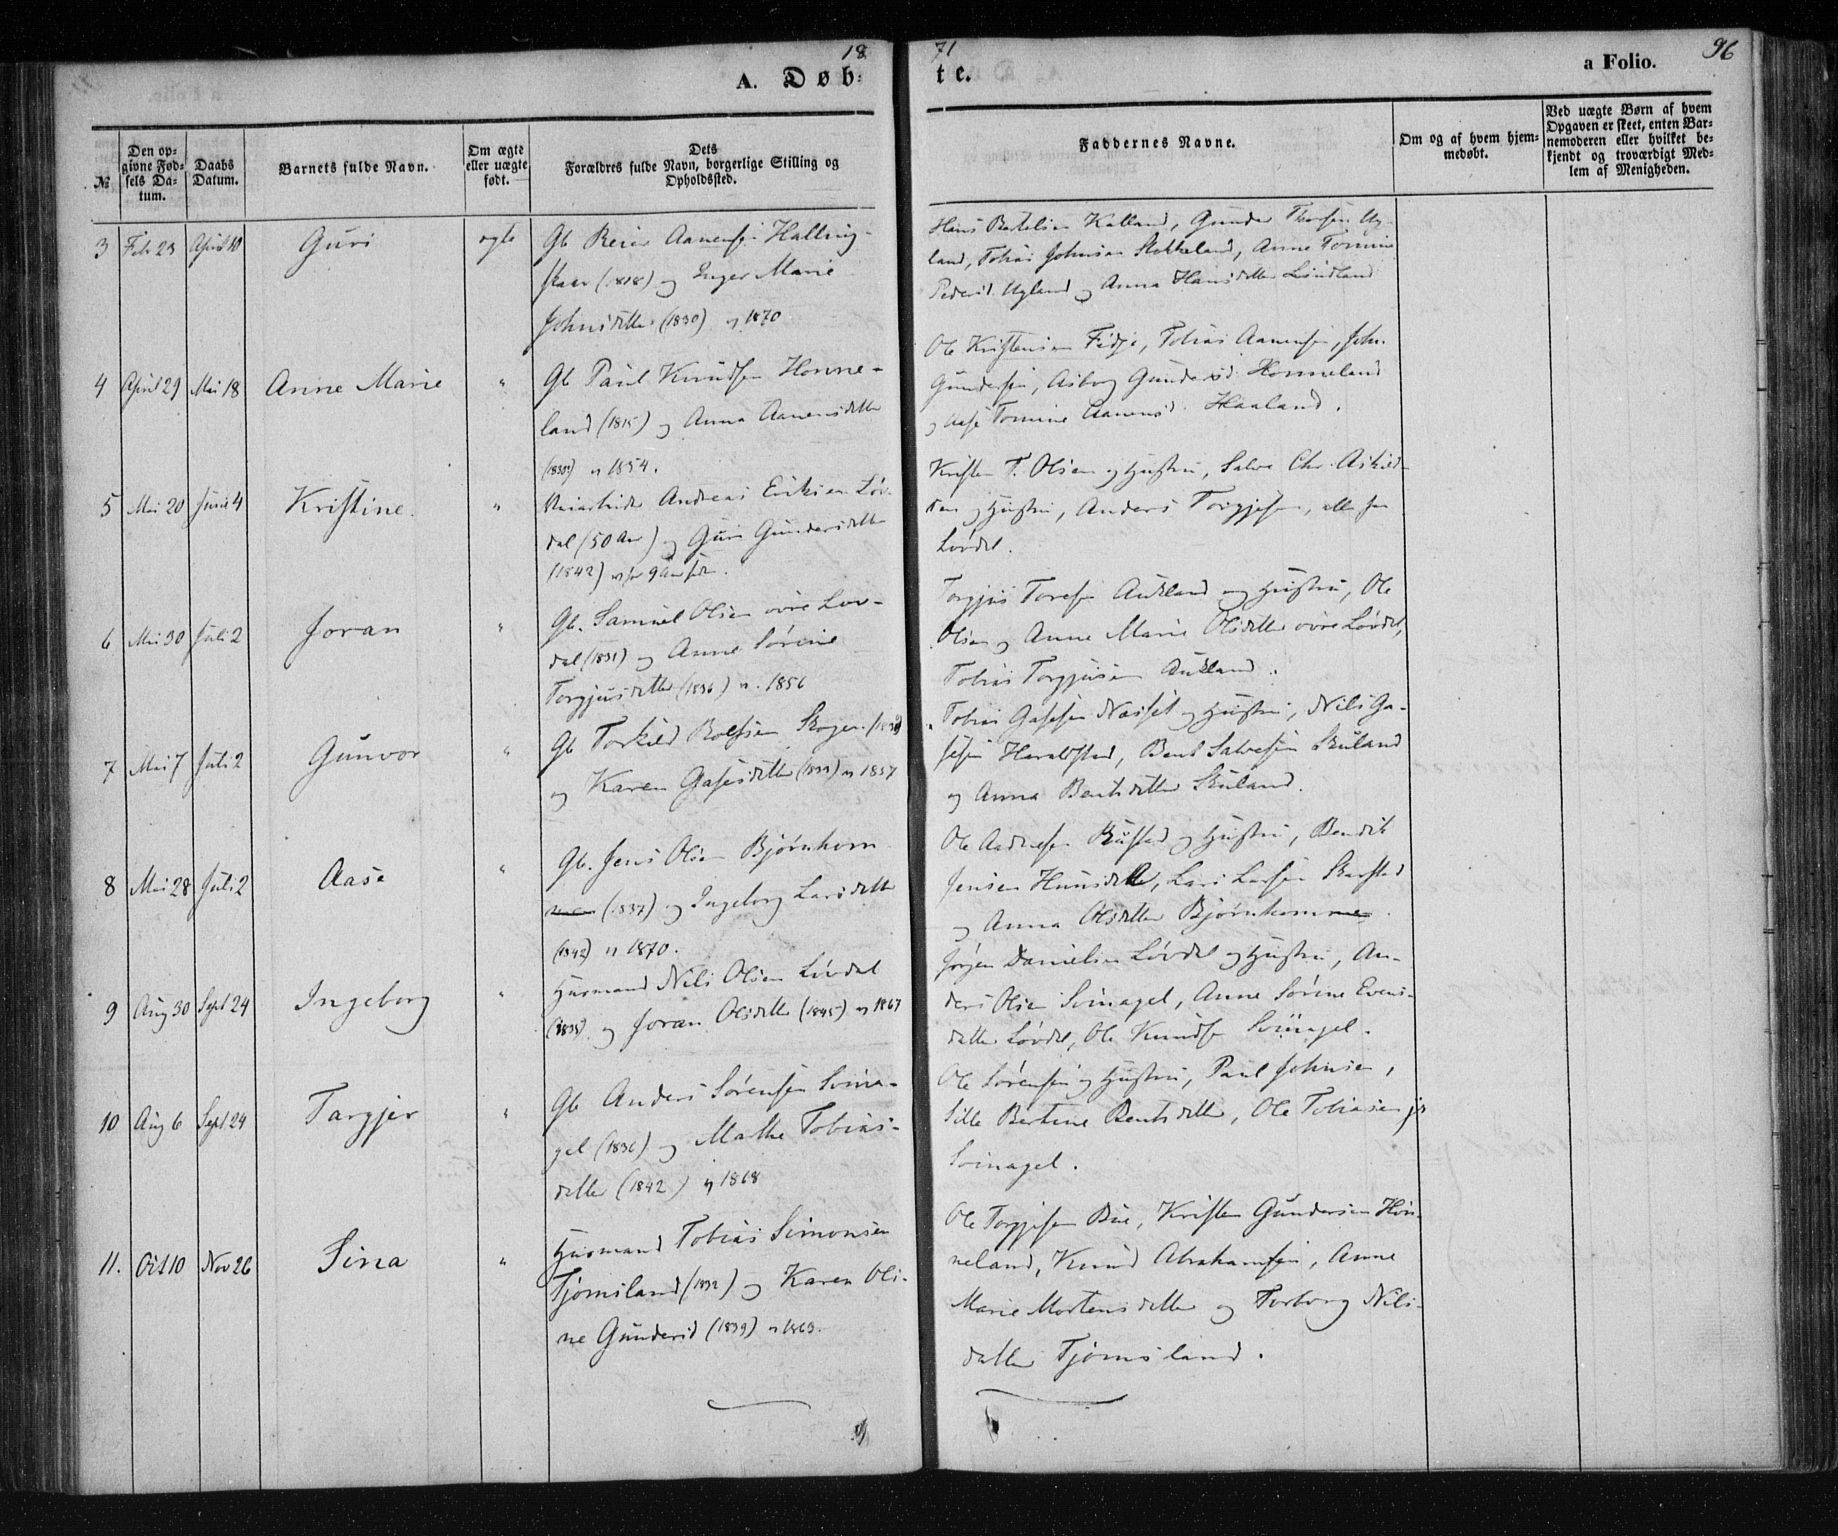 18 71 96
A. Døb- te. a Folio.
№
Den op-
givne Fød-
sels Da-
tum.
Daabs
Datum.
Barnets fulde Navn.
Om ægte
eller uægte
født.
Dets
Forældres fulde Navn, borgerlige Stilling og
Opholdssted.
Faddernes Navne.
Om og af hvem hjem-
medøbt.
Ved uægte Børn af hvem
Opgaven er skeet, enten Bar-
nemoderen eller hvilket be-
kjendt og troværdigt Med-
lem af Menigheden.
3 Feb 23 April 10 Guri ægte Gb Reier Aanensen Halling-
skaar (1818) og Inger Marie
Johnsdatter (1830) v 1870
Hans Bertelsen Kalland, Gunder Thorsen Ug-
land, Tobias Johnsen Stokkeland, Anne Tomine
Pedersd. Ugland og Anna Hansdatter Lindland
4 April 29 Mai 18 Anne Marie " Gb Paul Knudsen Honne-
land (1815) og Anna Aanensdatter
(1830) v 1854.
Ole Kristensen Fidje, Tobias Aanensen, John
Gundersen, Asborg Gundersd. Honneland
og Aase Tomine Aanensd. Haaland.
5 Mai 20 Juni 4 Kristine. " Andreas Eriksen Løv-
dal (50 Aar) og Guri Gundersdatter
(1842) v for 9 Aar siden.
Kristen T. Olsen og Hustru, Salve Chr. Askild-
sen og Hustru, Anders Torgjesen, alle fra
Løvdal.
6 Mai 30 Juli 2 Joran " Gb. Samuel Olsen øvre Løv-
dal (1831) og Anne Sørine
Torgjusdatter (1836) v. 1856
Torgjus Toresen Aukland og Hustru, Ole
Olsen og Anne Marie Olsdatter øvre Løvdal,
Tobias Torgjusen Aukland.
7 Mai 7 Juli 2 Gunvor " Gb Torkild Rolfsen Skogen
og Karen Gasesdatter (1833) v 1857
Tobias Gasesen Næset og Hustru, Nils Ga-
sesen Haraldstad, Bent Salvesen Skuland
og Anna Bentsdatter Skuland.
8 Mai 28 Juli 2 Aase " Gb. Jens Olsen Bjørnhom
(1837) og Ingeborg Larsdatter
(1842) v 1870.
Ole Hustru, Bendik
Jensen Lars Larsen Skarstad
og Anna Olsdatter Bjørnhomme.
9 Aug 30 Sept 24 Ingeborg " Husmand Nils Olsen Løvdal
(1838) og Joran Olsdatter (1845) v 1867
Jørgen Danielsen Løvdal og Hustru, An-
ders Olsen Svinagel, Anne Sørine Evens-
datter Løvdal, Ole Knudsen Svinagel.
10 Aug 6 Sept 24 Targjer " Gb Anders Sørensen Svina-
gel (1836) og Malke Tobias-
datter (1842) v 1868
Ole Sørensen og Hustru, Paul Johnsen,
Sille Bertine Bentsdatter, Ole Tobiasen
Svinagel.
11. Oct 10 Nov 26 Sina " Husmand Tobias Simonsen
Tjømsland (1832) og Karen Oli-
ne Gundersd (1839) v 1863.
Ole Torgjesen Bue, Kristen Gundersen Hon-
neland, Knud Abrahamsen, Anne
Marie Mortensdatter og Torborg Nils-
datter Tjømsland.